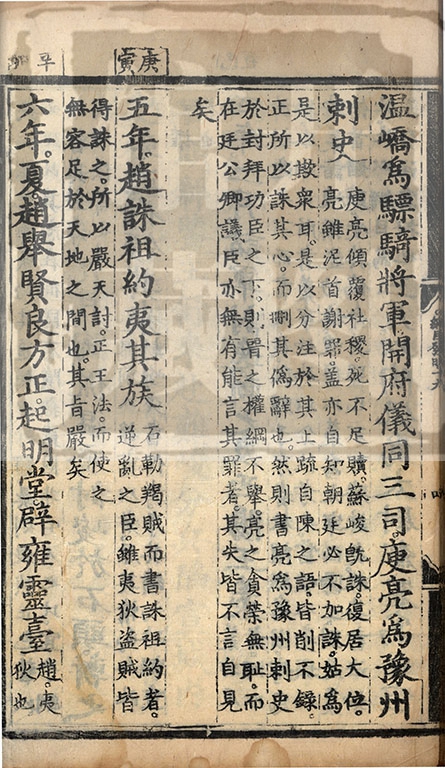 温嶠爲驃騎將軍開府儀同三司。庾亮爲豫州
刺史
庾亮傾覆社稷。死不足贖。蘇峻旣誅。復居大位。
亮雖泥首謝罪。盖亦自知朝廷必不加誅。姑爲
是以欺衆耳。是以分注於其上疏自陳之語。皆削不錄。
正所以誅其心。而刪其僞辭也。然則書亮爲豫州刺史
於封拜功臣之下。則晋之權綱不舉。亮之貪榮無恥。而
在廷公卿議臣亦無有能言其罪者。其失皆不言自見
矣
庚寅
五年。趙誅祖約夷其族
石勒羯賊而書誅祖約者。
逆亂之臣。雖夷狄盜賊皆
得誅之。所以嚴天討。正王法。而使之
無容足於天地之間也。其旨嚴矣
辛卯
六年。夏。趙舉賢良方正。起明堂。辟雍靈臺
趙。夷
狄也